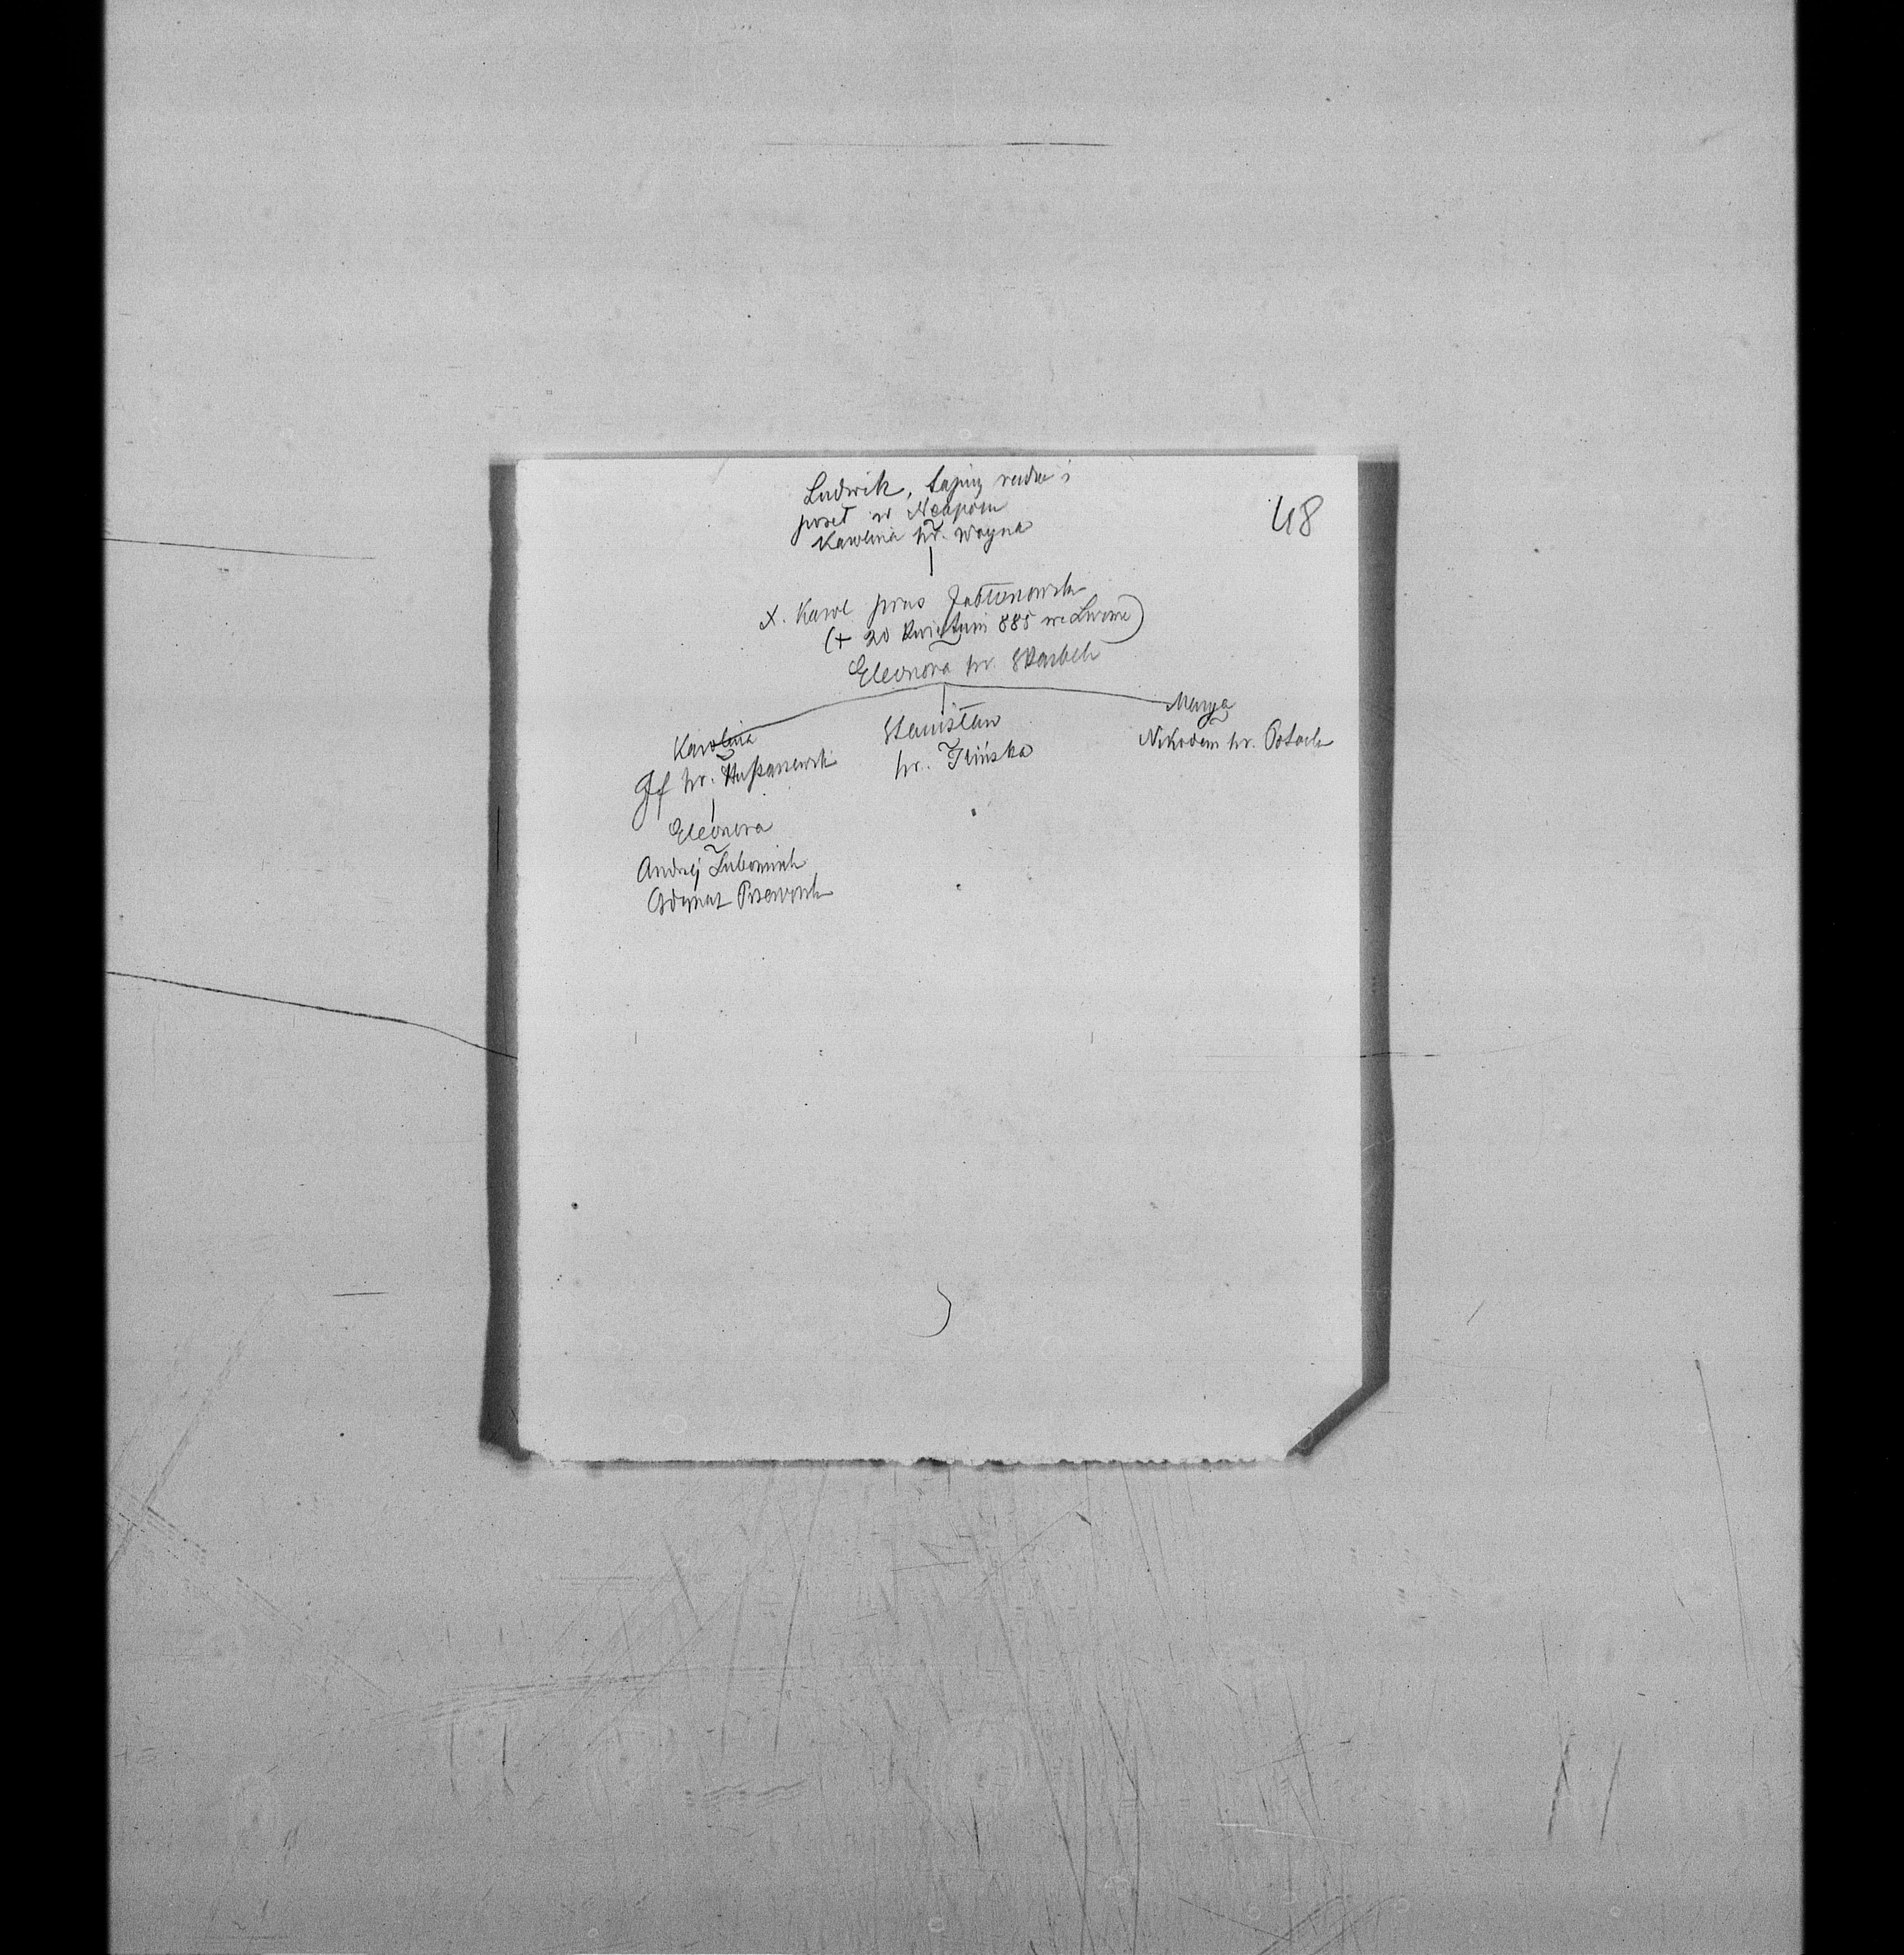 48
Ludwik, tajny radca i
poseł w Neapolu
Karolina hr. Woyna
X. Karol prus Jabłonowski
(+ 20 kwietnia 885 we Lwowie)
Eleonora hr. Skarbek
Karolina
hr. Hussarzewski
Eleonora
Andrzej Lubomirski
Ordynat Przeworsk
Stanisław
hr. Ilińska
Marya
Nikodem hr. Potocki